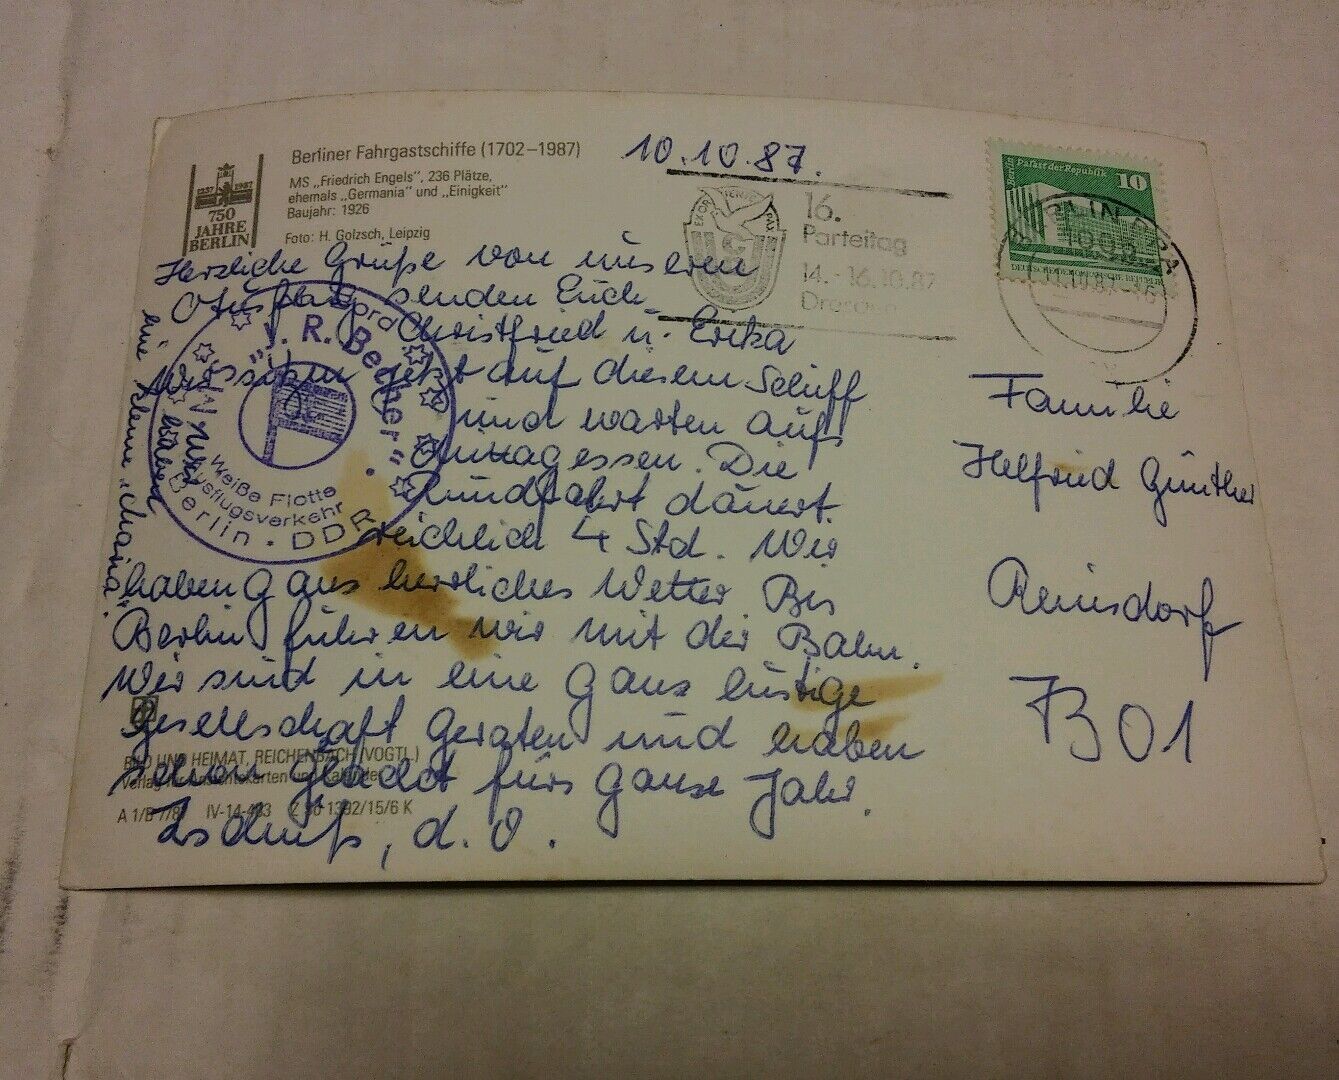 Berliner Fahrgastschiffe (1702–1987)
MS „Friedrich Engels“, 236 Plätze,
ehemals „Germania“ und „Einigkeit“
Baujahr: 1926
Foto: H. Golzsch, Leipzig
1237 1987
750
JAHRE
BERLIN
10.10.87.
16.
Parteitag
14.-16.10.87
Dresden
Palast der Republik
10
DEUTSCHE DEMOKRATISCHE REPUBLIK
BERLIN BPA
Herzliche Grüße von unserem
Ausflug senden Euch
Christfried u. Erika
Wir sitzen jetzt auf diesem Schiff
und warten aufs
Mittagessen. Die
Rundfahrt dauert
reichlich 4 Std. Wir
haben ganz herrliches Wetter. Bis
Berlin fuhren wir mit der Bahn.
Wir sind in eine ganz lustige
Gesellschaft geraten und haben
schon gelacht fürs ganze Jahr.
Tschüß, d. O.
wir haben
eine kleine
„J. R. Becher“
Weiße Flotte
Ausflugsverkehr
Berlin · DDR
Familie
Helfried Günther
Reinsdorf
BILD UND HEIMAT, REICHENBACH (VOGTL.)
A 1/B 7/87 IV-14-483
1392/15/6 K